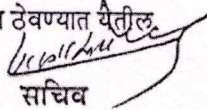 ठेवण्यात येतील.
सचिव